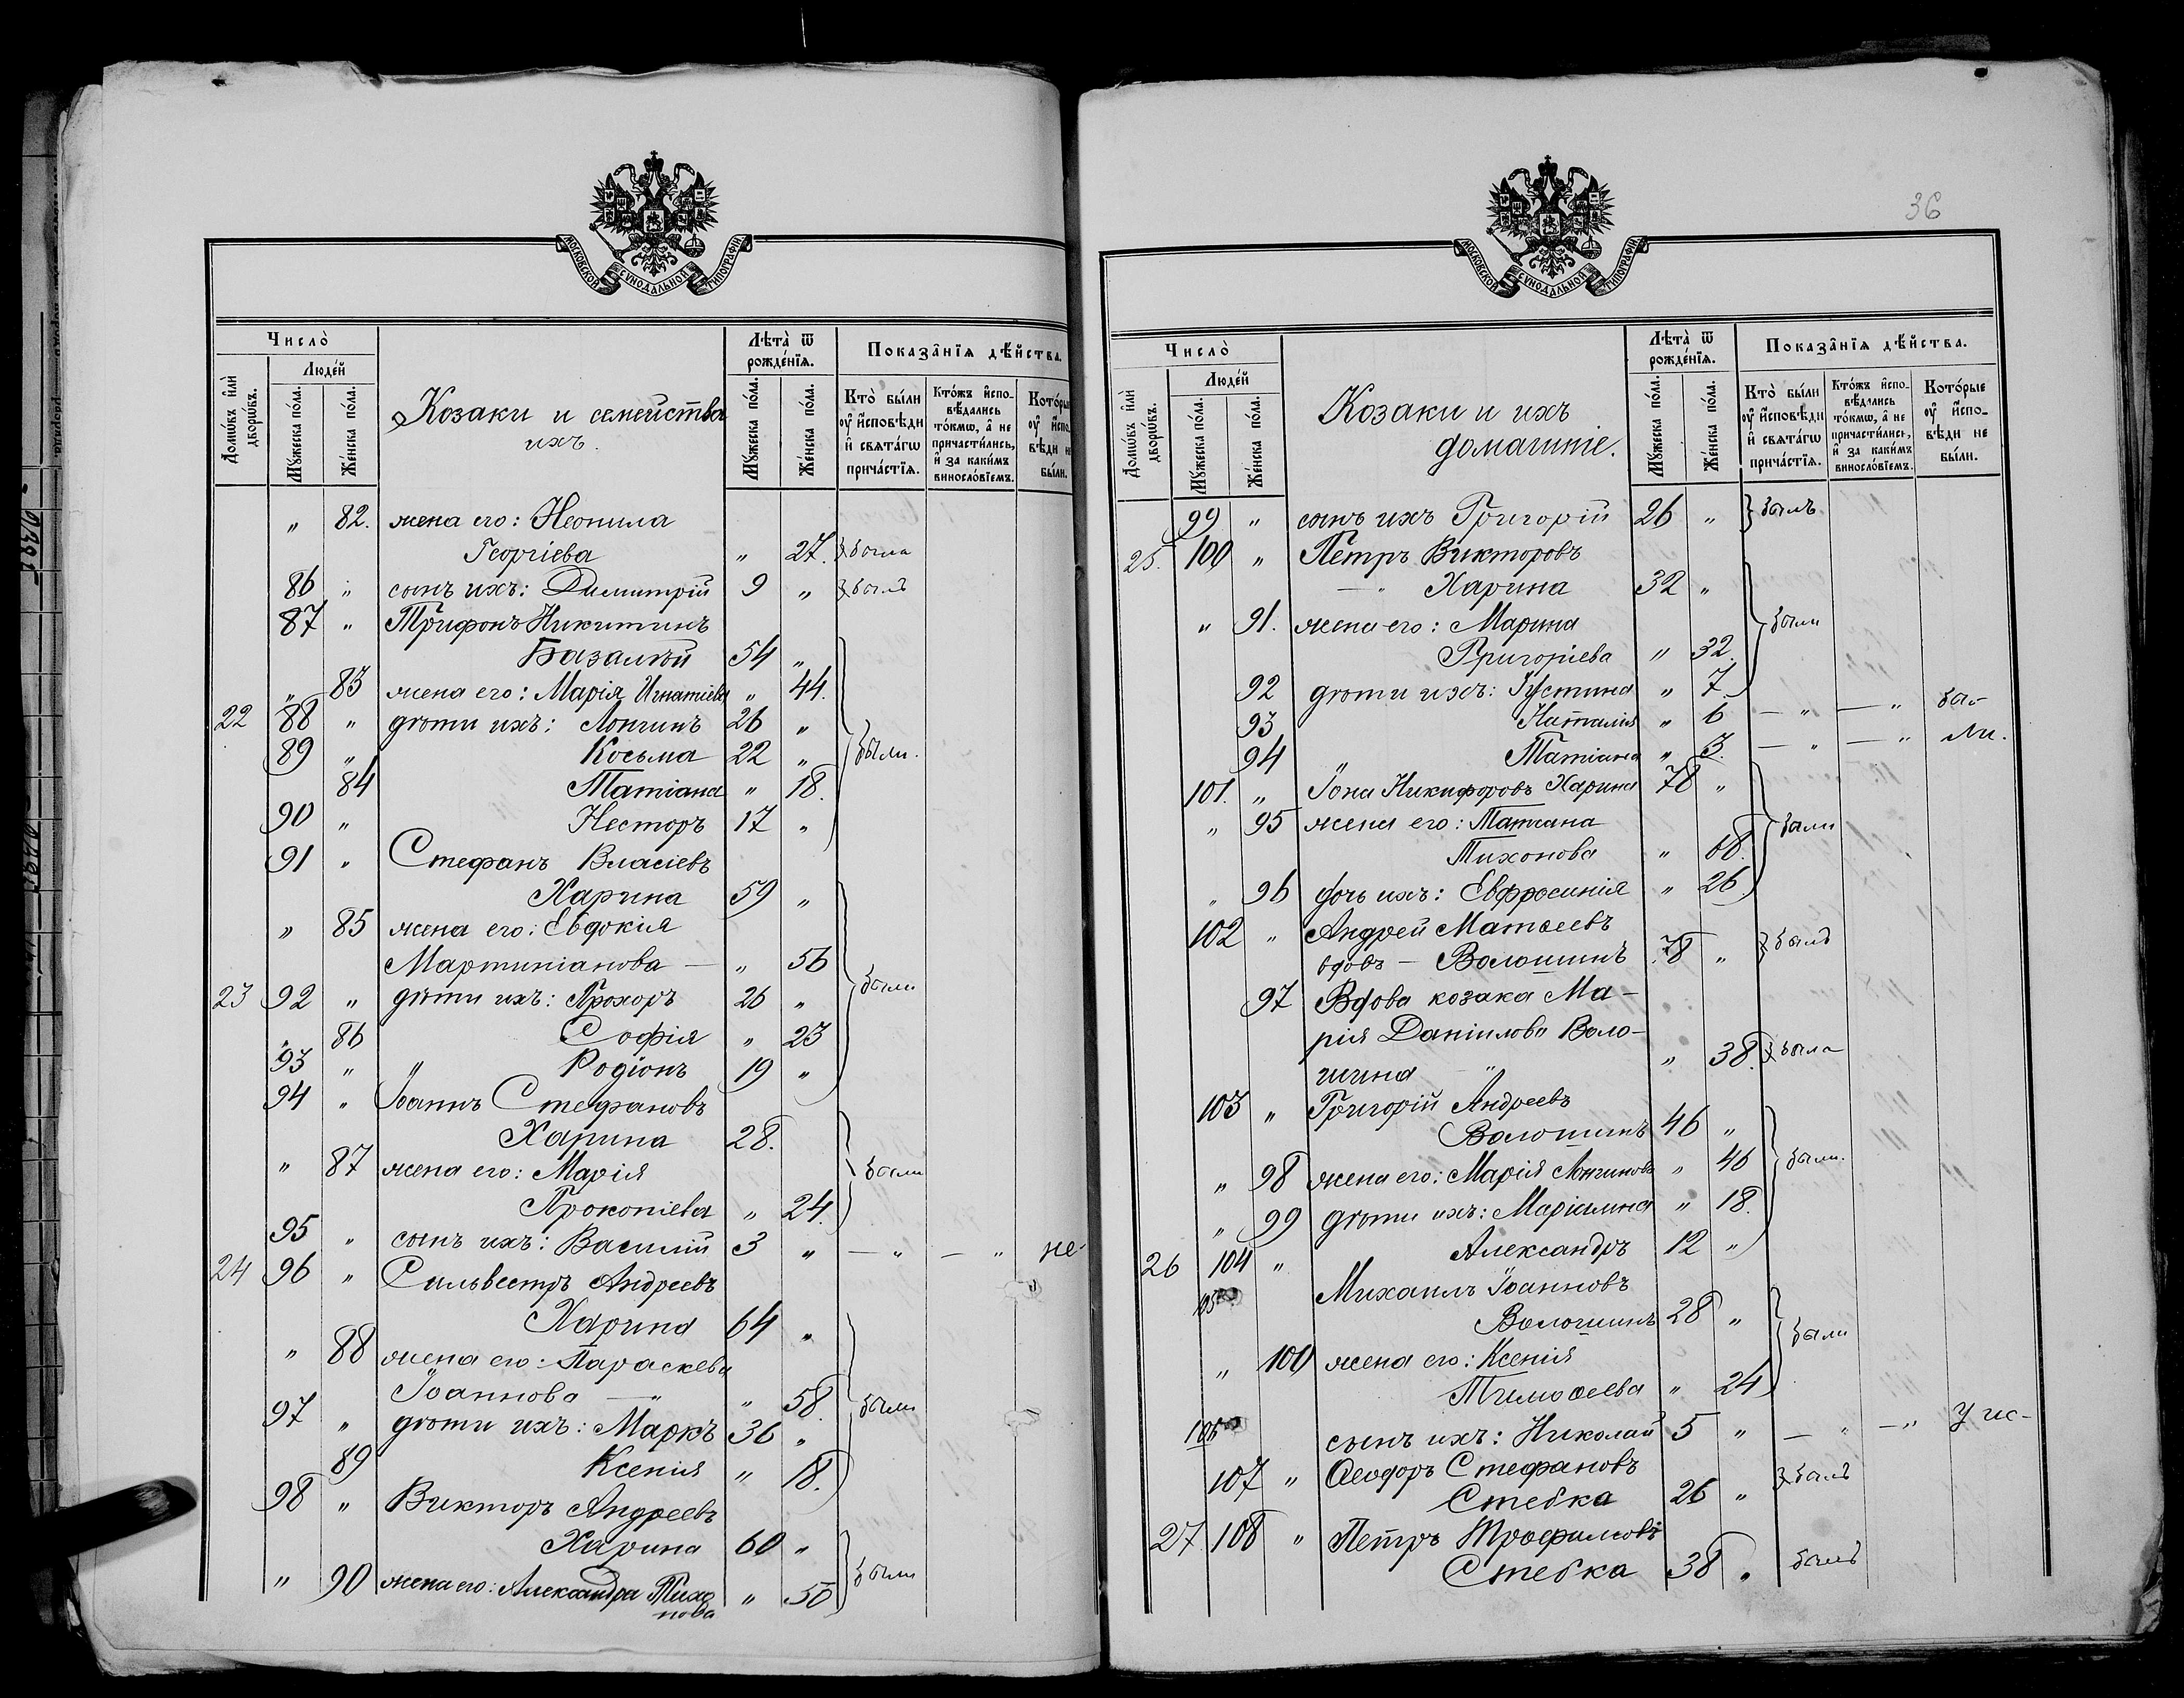 МОСКОВСКОЙ СѴНОДАЛЬНОЙ ТИПОГРАФІИ
Число̀
Людей
Домѡвъ и҆лѝ дворѡвъ.
Мꙋжеска по́ла.
Же́нска по́ла.
Козаки и семейства
ихъ.
Лѣта̀ ѿ рожде́нїѧ.
Мꙋжеска по́ла.
Же́нска по́ла.
Показа̂нїѧ дѣ́йства.
Кто̀ бы́ли оу҆ и҆сповѣди и҆ свѧта́гѡ прича́стїѧ.
Кто́жъ и҆сповѣдались то́кмѡ, а҆ не причасти́лись, и҆ за каки́мъ винословїемъ.
Которы оу҆ и҆спо- вѣди не бы́ли.
„ 82. жена его: Неонила
Георгіева „ 27. была
86 „ сынъ ихъ: Димитрій 9 „ былъ
87 „ Трифонъ Никитинъ
Базалѣй 54 „
„ 83 жена его: Марія Игнатіева „ 44.
22 88 „ дѣти ихъ: Лонгинъ 26 „
89 „ Косьма 22 „ были.
84 Татіана „ 18.
90 „ Несторъ 17 „
91 „ Стефанъ Власіевъ
Харина 59 „
„ 85 жена его: Евдокія
Мартиніанова — „ 56
23 92 „ дѣти ихъ: Прохоръ 26 „ были
„ 86 Софія „ 23
93 „ „ Родіонъ 19 „
94 „ Іоаннъ Стефановъ
Харина 28.
„ 87 жена его: Марія были
Прокопіева „ 24.
95 „ сынъ ихъ: Василій 3 „ — „ — „ не
24 96 „ Сильвестръ Андреевъ
Харина 64 „
„ 88 жена его: Параскева
Іоаннова — „ „ 58. были
97 „ дѣти ихъ: Маркъ 36 „
89 Ксенія „ 18.
98 „ Викторъ Андреевъ
Харина 60 „
„ 90 жена его: Александра Тихо „ 50 были
нова
36
МОСКОВСКОЙ СѴНОДАЛЬНОЙ ТИПОГРАФІИ
Число̀
Людей
Домѡвъ и҆лѝ дворѡвъ.
Мꙋжеска по́ла.
Же́нска по́ла.
Козаки и ихъ
домашніе.
Лѣта̀ ѿ рожде́нїѧ.
Мꙋжеска по́ла.
Же́нска по́ла.
Показа̂нїѧ дѣ́йства.
Кто̀ бы́ли оу҆ и҆сповѣди и҆ свѧта́гѡ прича́стїѧ.
Кто́жъ и҆спо- вѣдались то́кмѡ, а҆ не причасти́лись, и҆ за каки́мъ винословїемъ.
Кото́рые оу҆ и҆спо- вѣди не бы́ли.
99 „ сынъ ихъ Григорій 26 „ былъ
25. 100 „ Петръ Викторовъ
— „ Харина 32 „
„ 91. жена его: Марина были
Григоріева „ 32.
92 дѣти ихъ: Густина „ 7.
93 Наталія „ 6 — „ — „ бы-
94 „ Татіана „ 3. — „ — „ ли.
101. „ Іона Никифоровъ Харина 78 „
„ 95 жена его: Татіана были
Тихонова „ 68.
„ 96 дочь ихъ: Евфросинія „ 26
102 „ Андрей Матѳеевъ
вдовъ — Волошинъ 78 „ былъ
97 Вдова козака Ма-
рія Даніилова Воло-
шина „ „ 38. была
103 „ Григорій Андреевъ
Волошинъ 46 „
„ 98 жена его: Марія Лонгинова „ 46 были.
„ 99 дѣти ихъ: Маріамна „ 18.
26 104 „ Александръ 12 „
105 Михаилъ Іоанновъ
Волошинъ 28 „
„ 100 жена его: Ксенія были
Тимоѳеева „ 24
106 сынъ ихъ: Николай 5 „ — „ — „ у ис-
107 „ Ѳеодоръ Стефановъ
Стебка 26 „ былъ
27. 108 „ Петръ Трофимовъ
Стебка 38 „ былъ